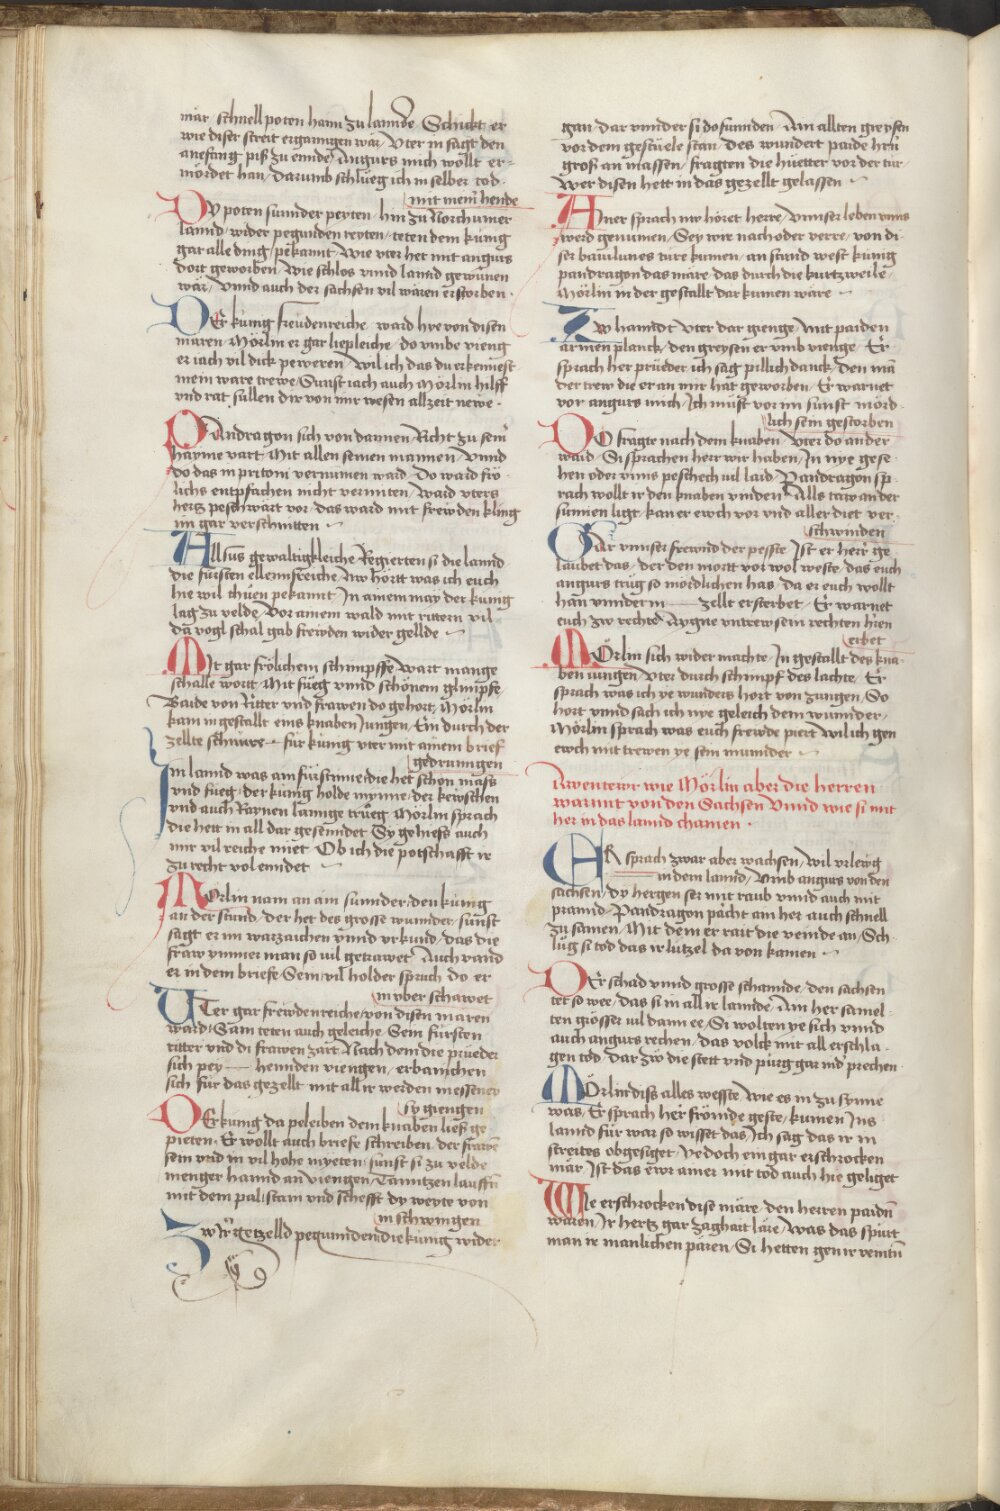 mär / schnell poten hann zu lannde Schickt er
wie diser streit ergangen wär / Vter in sagt den
anefang piß zu ennde / Angurs mich wollt er-
mördet han / darumb schlueg ich in selber tod
mit mein hende
Dy poten sunder peyten / hin zu Norchumer
lannd / wider pegunden reyten / teten dem kunig
gar alle ding / pekannt / Wie vter het mit angus
dort geworben / Wie schlos vnnd lannd gewunen
wär / vnnd auch der sachsen vil wären erstorben ·
Der kunig freudenreiche ward hye von disen
mären / Mörlin er gar liepleiche / do vmbe vieng
er iach vil dick peweren / wil ich das du erkennest
mein ware trewe / Sunst iach auch Mörlin hilff
vnd rat süllen dir von mir wesen allzeit newe ·
Pandragon sich von dannen Richt zu sein
hayme vart / Mit allen seinen mannen / Vnnd
do das in pritoni vernumen ward / Do ward frö-
lichs entpfachen nicht vermiten / Ward vters
hertz peschwärt vor / das ward mit frewden kling
im gar verschnitten ~
Allsus gewaltigkleiche Regierten si die lannd
die fürsten ellennsreiche / Nw hörtt was ich euch
hie wil thuen pekannt / In ainem may der kunig
lag zu velde / Vor ainem wald mit rittern vil
da vogl schal gab frewden wider gellde ~
Mit gar frölichem schimpffe / Wart mange
schalle wortt / Mit fueg vnnd schönem glimpfe
Baide von Ritter vnd frawen do gehört / Mörlin
kam in gestallt eins knaben Jungen / Ein durch der
zellte schnüre — für kunig vter mit ainem brief
gedrungen
Im lannd was ain fürstinne / die het schon mass
vnd fueg / der kunig holde mynne / der kewschen
vnd auch Raynen lannge trueg / Mörlin sprach
die hett in all dar gesenndet / Sy gehiess auch
mir vil reiche miet / Ob ich die potschafft ir
zu recht vol enndet ~
Morlin nam an ain sunnder / den kunig
an der stund / der het des grosse wunnder / sunst
sagt er im warzaichen vnnd vrkund / das die
fraw ymmer man so vil getrawet / Auch vand
er in dem briefe / Sein vil holder spruch do er
in vber schawet
Vter gar frewdenreiche / von disen maren
ward / Sam teten auch geleiche / Sein fürsten
ritter vnd di frawen zart / Nach dem die prueder
sich pey — hennden viengen / erbainschen
sich für das gezellt mit all ir werden messner
sy giengen
Der kung da peleiben dem knaben ließ ge
pieten / Er wollt auch briefe schreiben / der frawen
sein vnd in vil hohe myeten / sunst si zu velde
menger hannd an viengen / Tanntzen lauffn
mit dem pal / stain vnd schefft dy weyte von
in schwingen
Zw Ir getzelld pegunden die kunig wider
gan / dar vnnder si do funnden / Ain allten greysen
vor dem gestuele stan / des wundert paide hrn
groß an massen / fragten die huetter vor der tür
Wer disen hett in das gezellt gelassen ~
Ainer sprach nw höret herre / Vnnser leben vnns
werd genumen / Sey wir nach oder verre / von di-
ser bawlunes türe kumen / an stund west kunig
pandragon das märe / das durch die kurtzweile /
Mörlin in der gestallt dar kumen wäre ~
Zw hannd Vter dar gienge / mit paiden
armen planck / den greysen er vmb vienge / Er
sprach her prueder ich sag pillich danck / den man
der trew die er an mir hat geworben / Er warnet
vor angurs mich / Ich müst vor im sunst mörd
lich sein gestorben
Do fragte nach dem knaben / Vter do ander
waid / Si sprachen herr wir haben / In nye gese-
hen oder vnns peschech vil laid / Pandragon sp-
rach wollt ir den knaben vinden / Alls taw an der
sunnen ligt / kan er ewch vor vnd aller diet ver
schwinden
Gar vnnser frewnd der pesste / Ist er herr ge
laubet das / der den mortt vor wol weste / das euch
angurs trüg so mördlichen has / da er euch wollt
han vnnder m — zellt ersterbet / Er warnet
euch zw rechte / Aygne vntrew sein rechten hren
erbet
Mörlin sich wider machte / In gestallt des kna-
ben iungen / Vter durch schimpf des lachte / Er
sprach was ich ye wunders hort von zungen / So
hort vnnd sach ich nye geleich dem wunnder /
Mörlin sprach was euch frewde piert / wil ich gen
ewch mit trewen ye sein munnder ~
Awentewr wie Mörlin aber die herren
warnnt von den Sachsen Vnnd wie si mit
her in das lannd chamen ·
Er sprach zwar aber wachsen / wil vrlewg
in dem lannd / Vmb angurs von den
sachsen / dy hergen ser mit raub vnnd auch mit
prannd / Pandragon pracht ain her auch schnell
zu samen / Mit dem er rait die veinde an / Sch-
lüg si tod das ir lützel da von kamen ~
Der schad vnnd grosse schannde / den sachsen
tet so wee / das si in all ir lannde / Ain her samel-
ten grösser vil dann ee / Si wolten ye sich vnnd
auch angurs rechen / das volck mit all erschla-
gen tod / dar zw die stett vnd pürg gar nid' prechen
Mörlin diss alles wesste / Wie es in zu synne
was / Er sprach her frömde geste / kumen Ins
lannd für war so wisset das / Ich sag das ir in
streites obgesiget / Yedoch ein gar erschrocken
mär / Ist das ewr ainer mit tod auch hie geliget
Wie erschrocken dise märe / den herren paiden
waren / Ir hertz gar zaghait läre / Was das spürt
man ir manlichen paren / Si hetten gen ir veintn